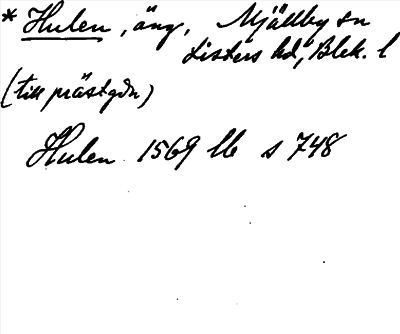 * Hulen, äng, Mjällby sn
Listers hd, Blek. l
(till prästgdn)
Hulen 1569 lb s 748